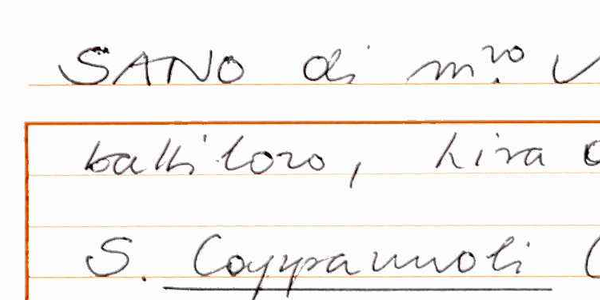 SANO di m.ro
battiloro, Lira
S. Coppannoli (